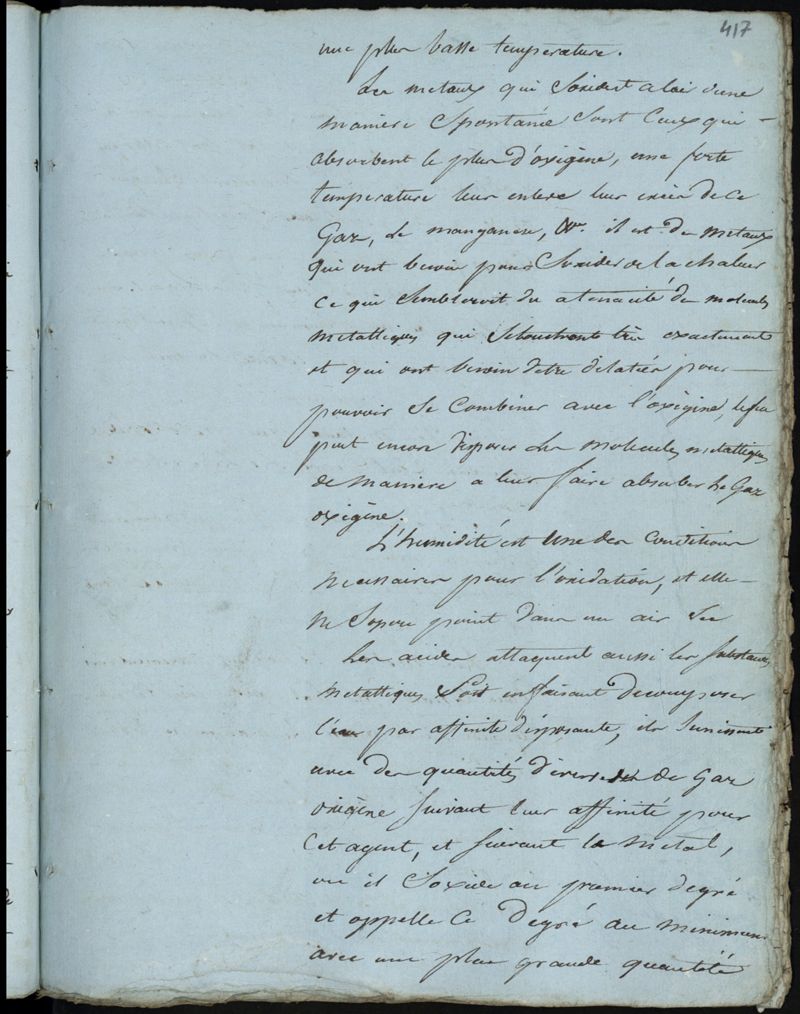 417
une plus basse temperature.
Les metaux qui Soxident a lair d'une
maniere Spontanée Sont Ceux qui
absorbent le plus d'oxigène, une forte
temperature leur enleve leur excès de Ce
Gaz, le manganese, &a. il est des metaux
qui ont besoin pour Soxider de la chaleur
Ce qui Sembleroit du a tenacité des molecules
metalliques qui Setouchent très exactement
et qui ont besoin detre dilatées pour
pouvoir Se Combiner avec l'oxigène, le feu
peut encore disposer les molecules metalliques
de maniere a leur faire absorber le Gaz
oxigène.
L'humidité est Une des Conditions
necessaires pour l'oxidation, et elle
ne Sopere point dans un air Sec
Les acides attaquent aussi les Substances
metalliques Soit en faisant decomposer
l'eau par affinité disposante, ils Sunissent
avec des quantités diverses de Gaz
oxigène Suivant leur affinité pour
Cet agent, et Suivant le metal,
ou il Soxide au premier degré
et appelle Ce Degré au minimum
avec une plus grande quantité